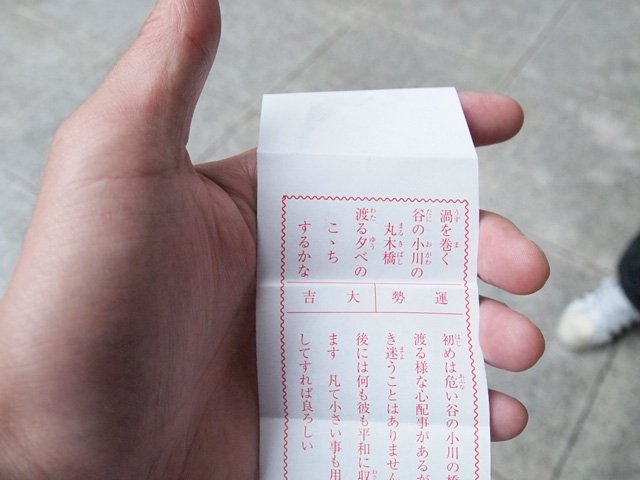 渦を巻く
谷の小川の
丸木橋
渡る夕べの
こゝち
するかな
運勢
大吉
初めは危い谷の小川の橋
渡る様な心配事があるが
き迷うことはありません
後には何も彼も平和に収
ます 凡て小さい事も用
してすれば良ろしい